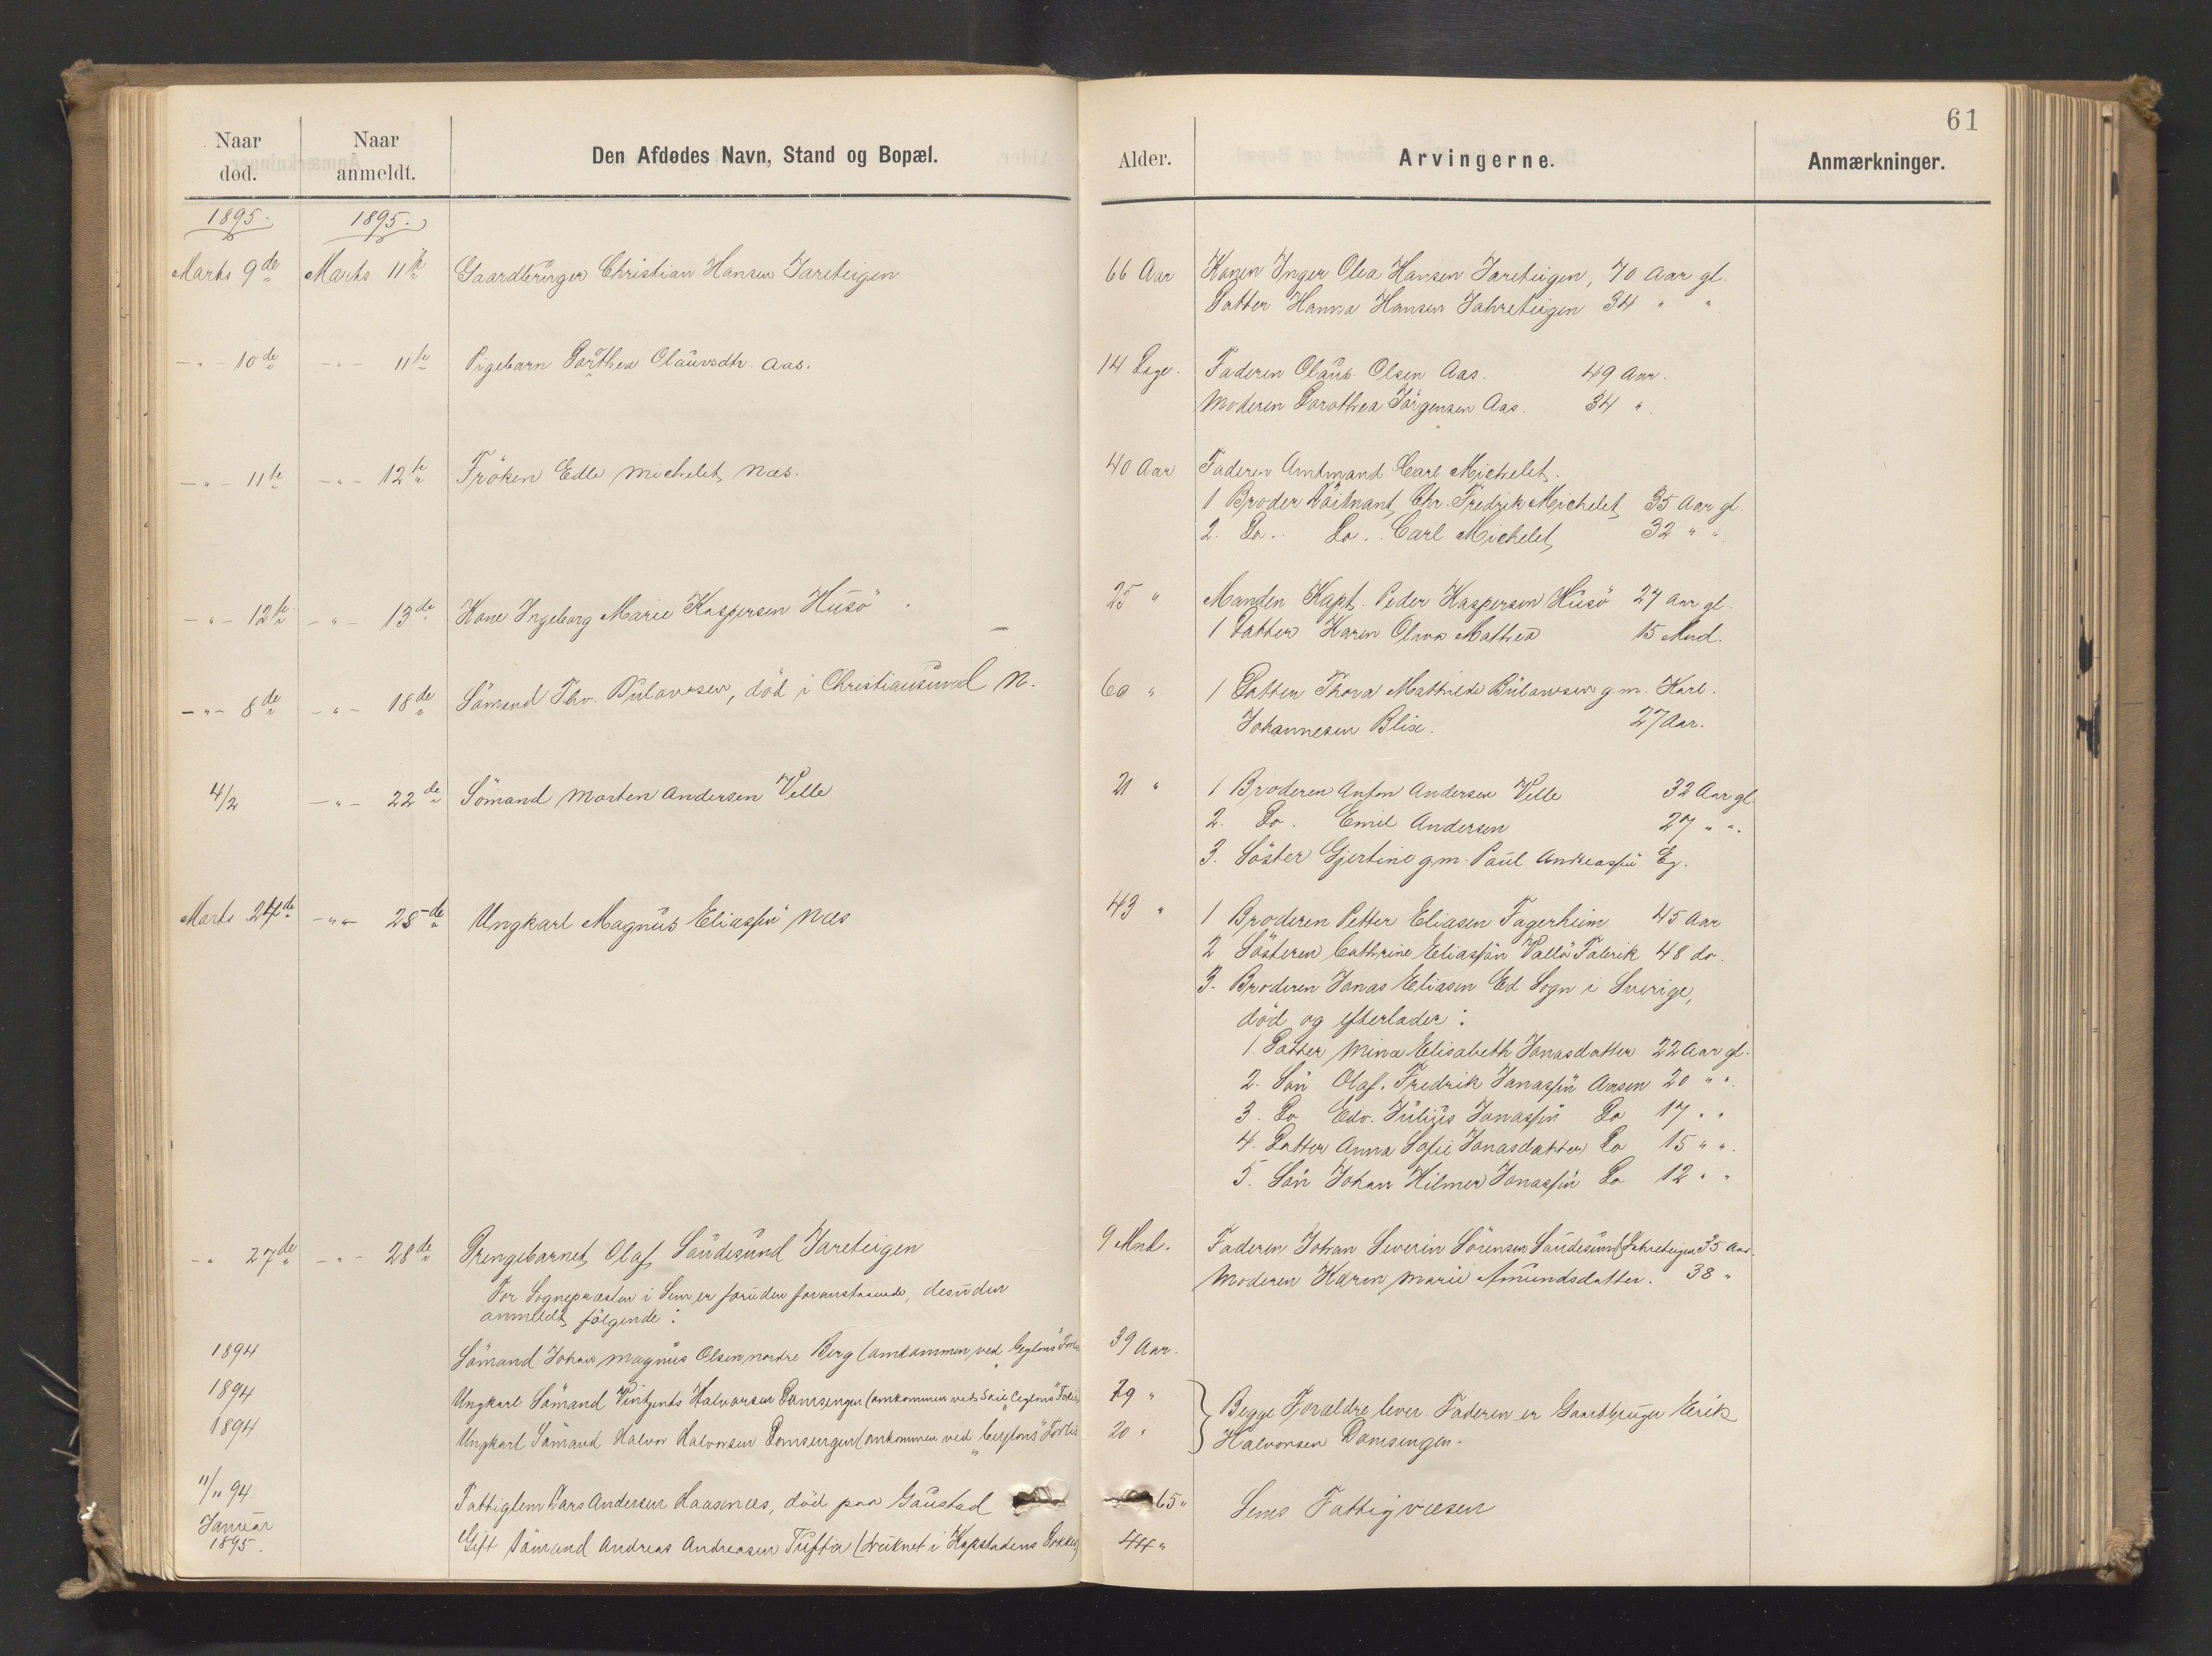 61
Naar død. Naar anmeldt. Den Afdødes Navn, Stand og Bopæl. Alder. Arvingerne. Anmærkninger.
1895. 1895.
Marts 9de Marts 11te Gaardbruger Christian Hansen Jareteigen 66 Aar Konen Inger Olea Hansen Jareteigen, 70 Aar gl.
Datter Hanna Hansen Jahreteigen 34 " "
- " - 10de - " - 11te Pigebarn Dorthea Olausdtr. Aas. 14 Dage. Faderen Olaus Olsen Aas. 49 Aar.
Moderen Dorothea Jörgensen Aas. 34 "
- " - 11te - " - 12te Fröken Edle Michelet Næs. 40 Aar Faderen Amtmand Carl Michelet.
1 Broder Löitnant Chr. Fredrik Michelet 35 Aar gl.
2. Do. Do. Carl Michelet 32 " "
- " - 12te - " - 13de Kone Ingeborg Marie Kaspersen Husö. 25 " Manden Kapt. Peder Kaspersen Husö 27 Aar gl.
1 Datter Karen Olava Mathea 15 Mnd.
- " - 8de - " - 18de Sömand Thv. Bülowsen, död i Christiansund N. 60 " 1 Datter Thora Mathilde Bülowsen g.m. Karl.
Johannesen Blix. 27 Aar.
4/2 - " - 22de Sömand Morten Andersen Velle 21 " 1 Broderen Anton Andersen Velle 32 Aar gl.
2. Do. Emil Andersen 27 " "
3. Söster Gjertine g.m. Paul Andreassen Eg.
Marts 24de - " - 25de Ungkarl Magnus Eliassen Næs 43 " 1 Broderen Petter Eliasen Fagerheim 45 Aar
2 Søsteren Cathrine Eliassön Vallö Fabrik 48 do.
3. Broderen Jonas Eliasen Ed Sogn i Sverige,
död og efterlader:
1. Datter Mina Elisabeth Jonasdatter 22 Aar gl.
2. Sön Olaf Fredrik Jonassen Aasen 20 " "
3. Do Edv. Julius Jonassen Do 17 " "
4. Datter Anna Sofie Jonasdatter Do 15 " "
5. Sön Johan Hilmer Jonassen Do 12 " "
- " 27de - " - 28de Drengebarnet Olaf Saudesund Jareteigen 9 Mnd. Faderen Johan Severin Sörensen Saudesund Jahreteigen 35 Aar.
Moderen Karen Marie Amundsdatter. 38 "
For Sognepræsten i Sem er foruden foranstaaende, desuden
anmeldt følgende:
1894 Sömand Johan Magnus Olsen nordre Berg (omkommen ved "Ceylons" Forlis 39 Aar.
1894 Ungkarl Sömand Vintzents Halvorsen Domsengen (omkommen ved Skib "Ceylons" Forlis 29 "
1894 Ungkarl Sömand Halvor Halvorsen Domsengen (omkommen ved "Ceylons" Forlis 20 " Begge Forældre lever. Faderen er Gaardbruger Erik
Halvorsen Domsengen.
11/11 94. Fattiglem Lars Andersen Haasenæs, död paa Gaustad 65 " Sems Fattigvæsen
Januar
1895. Gift Sömand Andreas Andreasen Tufta (druknet i Kapstadens Dokker) 44 "